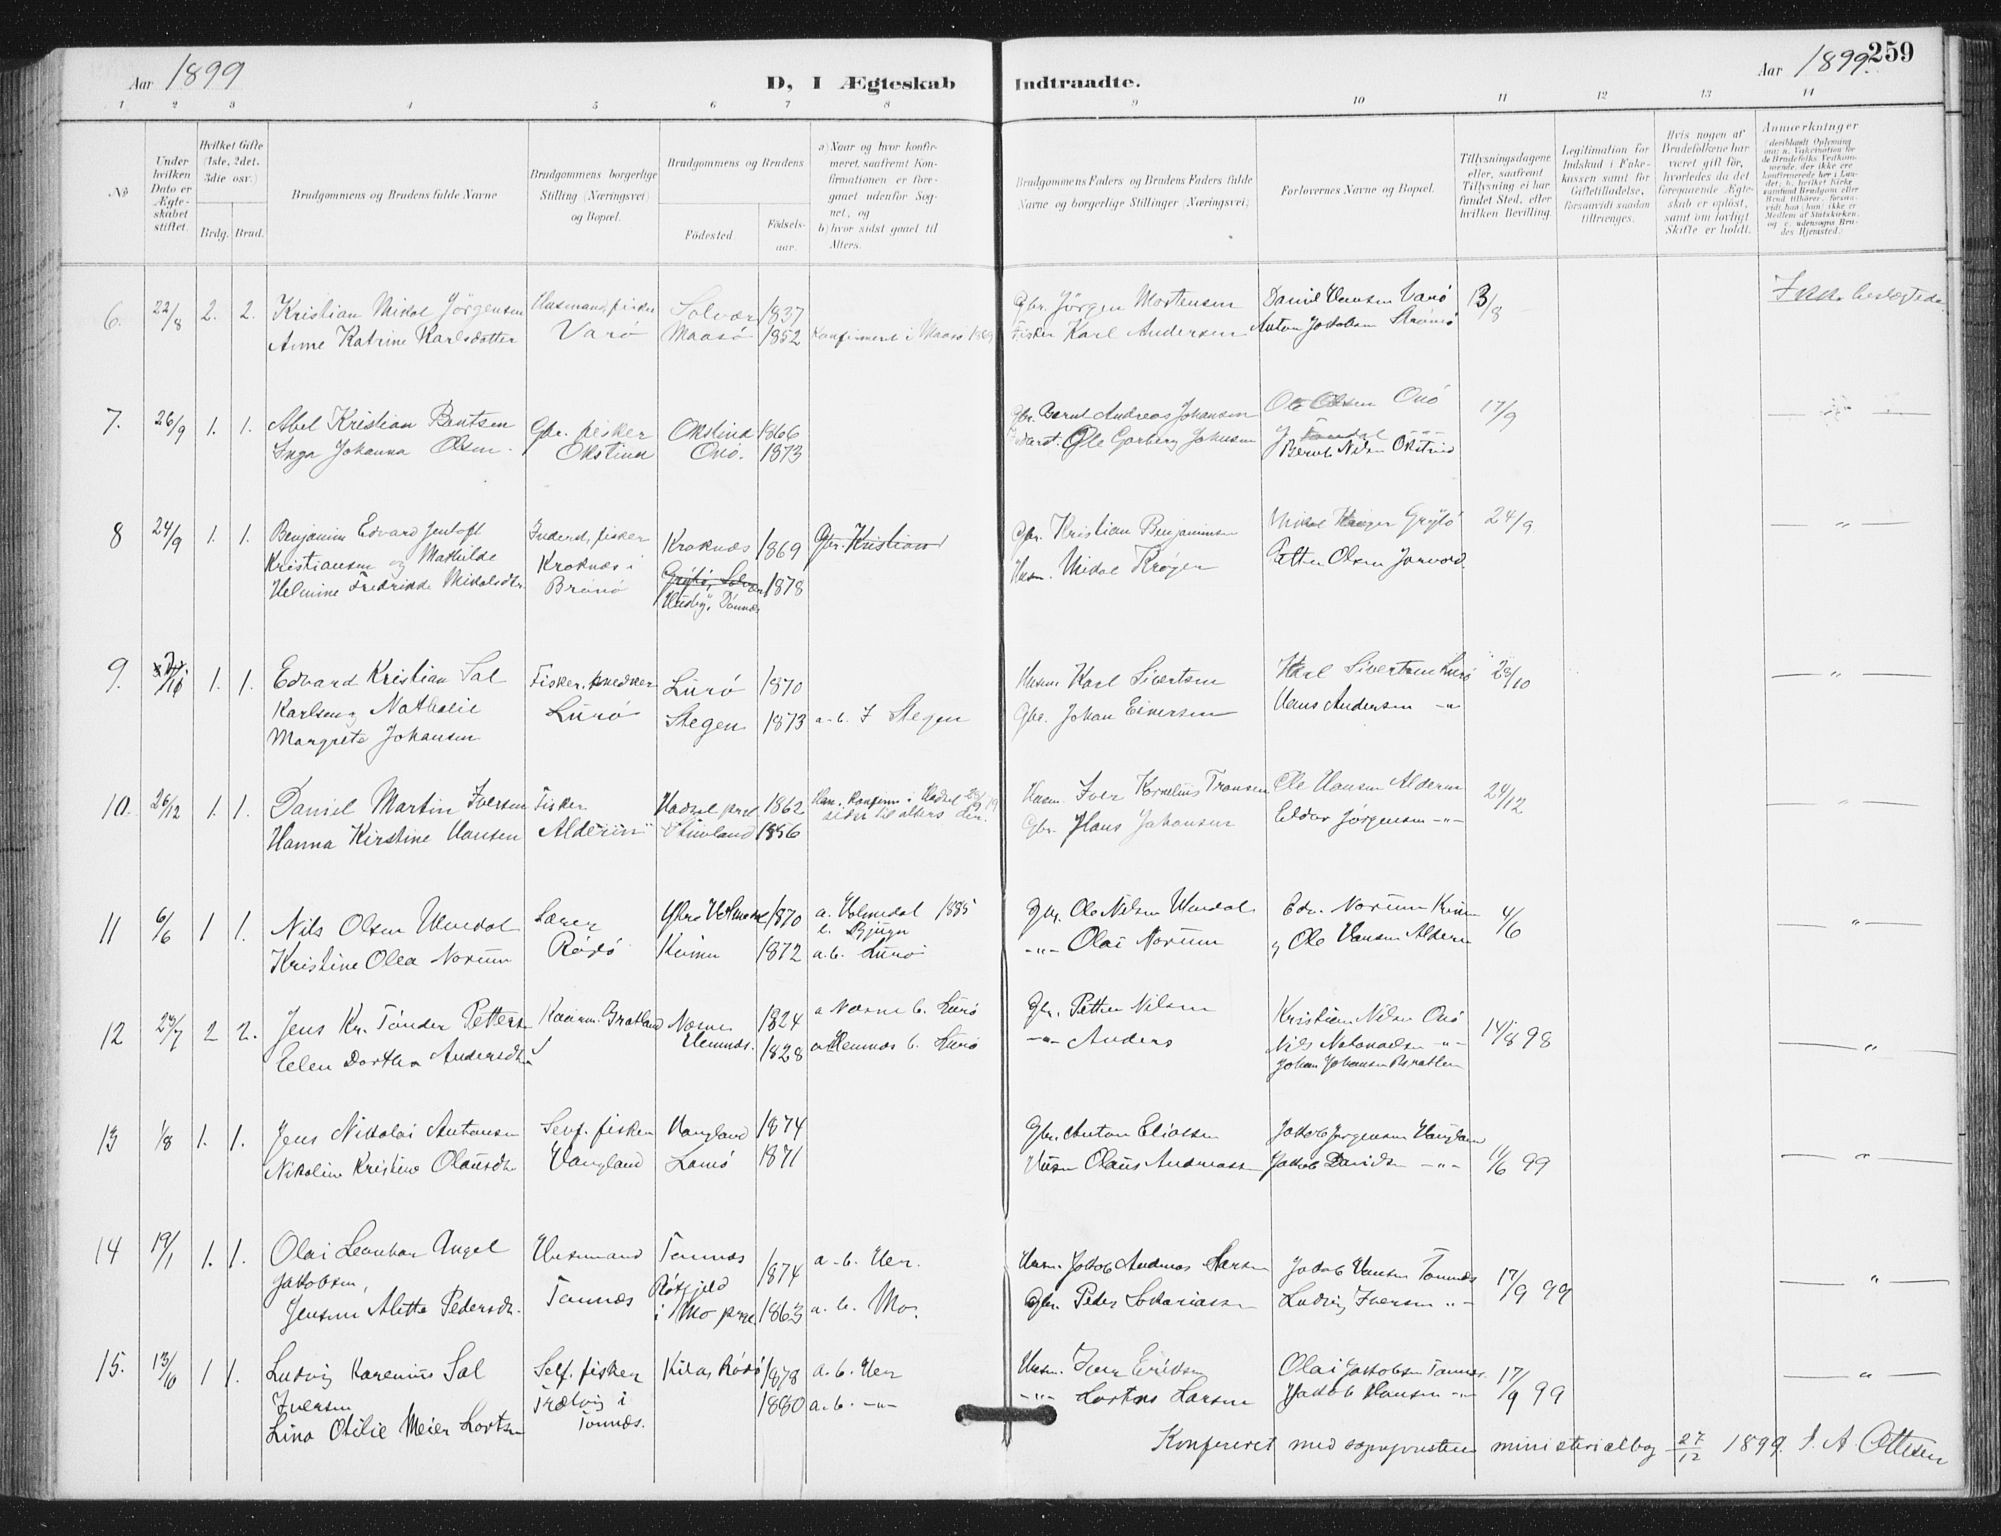 Aar 1899
D, I Ægteskab Indtraadte.
Aar 1899.
259
1 2 3 4 5 6 7 8 9 10 11 12 13 14
№
Under hvilken Dato er Ægteskabet stiftet.
Hvilket Gifte (1ste, 2det, 3die osv.)
Brdg. Brud.
Brudgommens og Brudens fulde Navne
Brudgommens borgerlige Stilling (Næringsvei) og Bopæl.
Brudgommens og Brudens
Fødested.
Fødselsaar.
a) Naar og hvor konfirmeret, saafremt Konfirmationen er foregaaet udenfor Sognet, og
b) hvor sidst gaaet til Alters.
Brudgommens Faders og Brudens Faders fulde Navne og borgerlige Stillinger (Næringsvei)
Forlovernes Navne og Bopæl.
Tillysningsdagene eller, saafremt Tillysning ei har fundet Sted, efter hvilken Bevilling.
Legitimation for Indskud i Enkekassen samt for Giftetilladelse, forsaavidt saadan tiltrænges.
Hvis nogen af Brudefolkene har været gift før, hvorledes da det foregaaende Ægteskab er opløst, samt om lovligt Skifte er holdt.
Anmærkninger
6. 22/8 2. 2. Kristian Mikal Jörgensen Husmand, fisker Solvær 1837 Gbr. Jörgen Mortensen Daniel Hansen Varö 13/8 Ikke beslægtede
Anne Katrine Karlsdatter Varö Maasö 1852 Konfirmeret i Maasö 1869 Fisker Karl Andersen Anton Jakobsen
7. 26/9 1. 1. Abel Kristian Bentsen Gbr. fisker Okstind 1866 Gbr. Bernt Andreas Johansen Ole Olsen Onö 17/9 — " —
Inga Johanna Olsen. Okstind Onö. 1873 Ole Garberg Johnsen
Bernt Nilsen Okstind
8 24/9 1. 1. Benjamin Edvard Jentoft Inderst, fisker Kroknæs 1869 Gbr. Kristian Gbr. Kristian Benjaminsen Mikal Kröger Grÿtö 24/9 — " —
Kristiansen og Mathilde Kroknæs i Grÿtö, Solvær 1878 Husm. Mikal Kröger Petter Olsen
Helmine Fredrikke Mikalsdtr. Brönö Husby, Dönnæs
9. 1. 1. Edvard Kristian Sal Fisker, snedker Lurö 1870 Husm Karl Sivertsen Karl Sivertsen Lurö 23/10 — " —
Karlsen og Nathalie Lurö Stegen 1873 a. b. I Stegen Gbr. Johan Eiversen Hans Andersen -"-
Margrete Johansen
10. 26/12 1. 1. Daniel Martin Iversen Fisker Hadsel prgl 1862 Han. konfirm i Hadsel Husm. Iver Kornelius Transen Ole Hansen Alderen 24/12 — " —
Hanna Kirstine Hansen Alderen Stuvland 1856 sidst til alters Gbr. Hans Johansen Eldar Jörgensen -"-
11 6/6 1 1. Nils Olsen Utvedal Lærer 1870 a. Holmedal 1885 Gbr. Ole Nilsen Utvedal Edv. Norum Kvinn 4/6 — " —
Kristine Olea Norum Rödö Kvinn 1872 b. Bjugn a. b. Lurö -"- Olai Norum og Ole Hansen Alderen
12 2 2. Jens Kr. Tönder Petters Kaarm. Gratland Næsne 1824 a Næsne b. Lurö Gbr. Petter Nilsen Kristian Nilsen Onö 14/8 98 — " —
Ellen Dorthea Andersdtr Hemnæs. 1828 a Hemnæs b. Lurö -"- Anders Nils Natanaelsen -"-
Johan Johansen
13 1/8 1. 1. Jens Nikolai Antonsen Selvf. fisker Hangland 1874 Gbr. Anton Eliassen Jakob Jörgensen Hangland 11/6 99 — " —
Nikoline Kristine Olausdtr Hangland Lamö 1871 Husm Olaus Andreassen Jakob Davidsen -"-
14 19/1 1. 1. Olai Leonhar Angel Husmand Tonnæs 1874 a. b. Her. Husm. Jakob Andreas Larsen Jakob Hansen Tonnæs 17/9 99 — " —
Jakobsen, Tonnæs Rötfjeld
Jensine Aletta Pedersdtr. i Mo prgl 1863 a. b. Mo. Gbr. Peder Sakariassen Ludvig Iversen -"-
15. 13/10 1 1. Ludvig Karenius Sal Self. fisker Kila, Rödö 1878 a. b. Her Husm. Iver Eriksen Olai Jakobsen Tonnæs. 17/9 99 — " —
Iversen Trætvig i 1880 a. b. -"- -"- Lorts Larsen Jakob Hansen -"-
Lina Otilie Meier Lortsen Tonnæs.
Konfereret med sogneprestens ministerialbog 27/12 1899. I. A. Ottesen